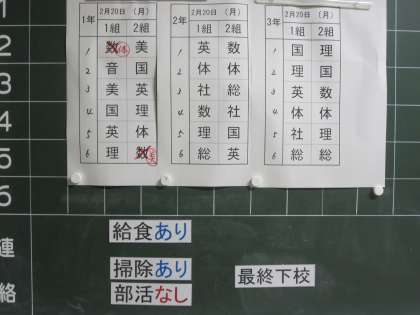 1年 2月20日 (月)
1組 2組
1 数 体 美
2 音 国
3 美 英
4 国 理
5 英 体
6 理 数
2年 2月20日 (月)
1組 2組
1 英 数
2 体 体
3 社 総
4 数 社
5 理 国
6 総 英
3年 2月20日 (月)
1組 2組
1 国 理
2 理 国
3 英 数
4 体 体
5 社 理
6 総 総
1
2
3
4
5
6
連
絡
給食あり
掃除あり
部活なし
最終下校